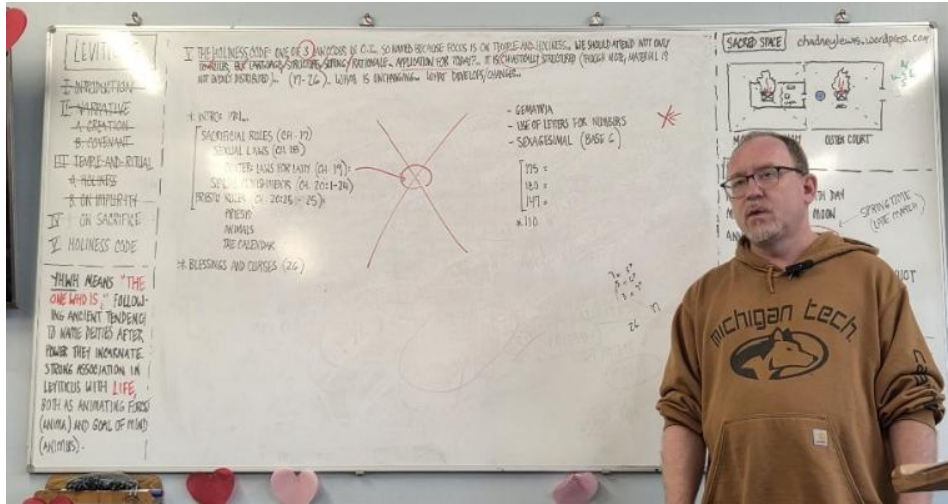 LEVITICUS
I INTRODUCTION
II NARRATIVE
A. CREATION
B. COVENANT
III TEMPLE AND RITUAL
A. HOLINESS
B. ON IMPURITY
IV ON SACRIFICE
V HOLINESS CODE
YHWH MEANS "THE
ONE WHO IS," FOLLOW-
ING ANCIENT TENDENCY
TO NAME DEITIES AFTER
POWER THEY INCARNATE.
STRONG ASSOCIATION IN
LEVITICUS WITH LIFE,
BOTH AS ANIMATING FORCE
(ANIMA) AND GOAL OF MIND
(ANIMUS).
V THE HOLINESS CODE: ONE OF 3 LAW CODES IN O.T. SO NAMED BECAUSE FOCUS IS ON TEMPLE AND HOLINESS. WE SHOULD ATTEND NOT ONLY
LANGUAGE/STRUCTURE/SETTING/RATIONALE. APPLICATION FOR TODAY? IT IS CHIASTICALLY STRUCTURED (THOUGH MORAL MATERIAL IS
NOT EVENLY DISTRIBUTED). (17-26). WHAT IS UNCHANGING. WHAT DEVELOPS/CHANGES.
SACRIFICIAL RULES (CH. 17)
SEXUAL LAWS (CH. 18)
LAWS FOR LAITY (CH. 19)
(CH. 20:1-24)
PRIESTLY RULES (CH. 20:25 - 25):
PRIESTS
ANIMALS
THE CALENDAR
* BLESSINGS AND CURSES (26)
- GEMATRIA
- USE OF LETTERS FOR NUMBERS
- SEXAGESIMAL (BASE 6)
175 =
180 =
147 =
* 110
26
SACRED SPACE
chadneylewis.wordpress.com
OUTER COURT
TH DAY
MOON
SPRINGTIME
(LATE MARCH)
michigan tech.